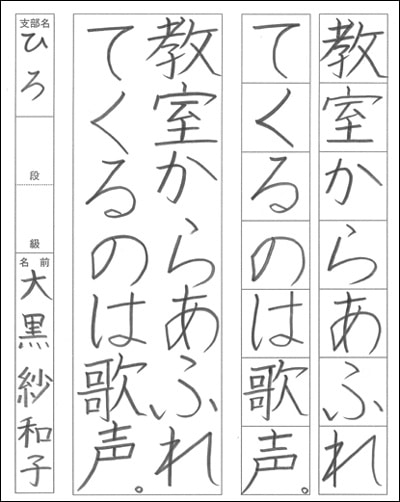 教室からあふれ
てくるのは歌声。
教室からあふれ
てくるのは歌声。
支部名
ひろ
段
級
名前
大黒紗和子